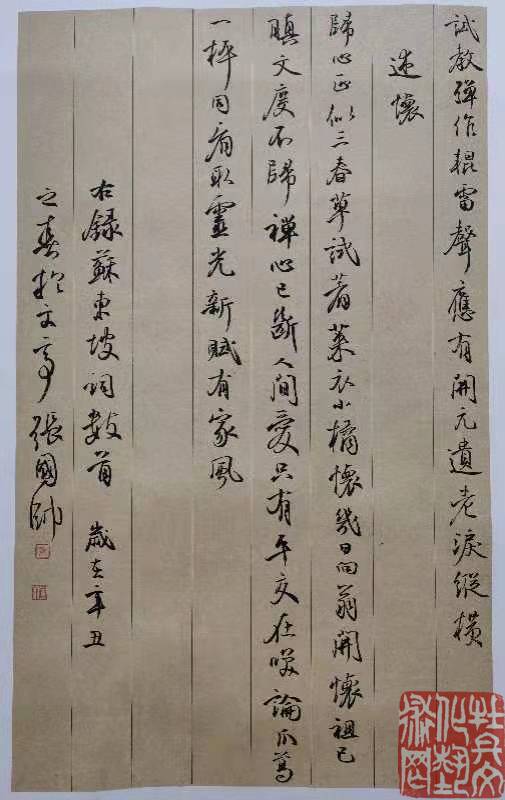 試教彈作輥雷聲應有開元遺老淚縱橫
述懷
歸心正似三春草試著萊衣小橘懷幾日向翁開懷祖已
瞋文度不歸禪心已斷人間愛只有平交在咲論瓜葛
一枰同看取靈光新賦有家風
右録蘇東坡詞數首 歲在辛丑
之春於文亭張國帥